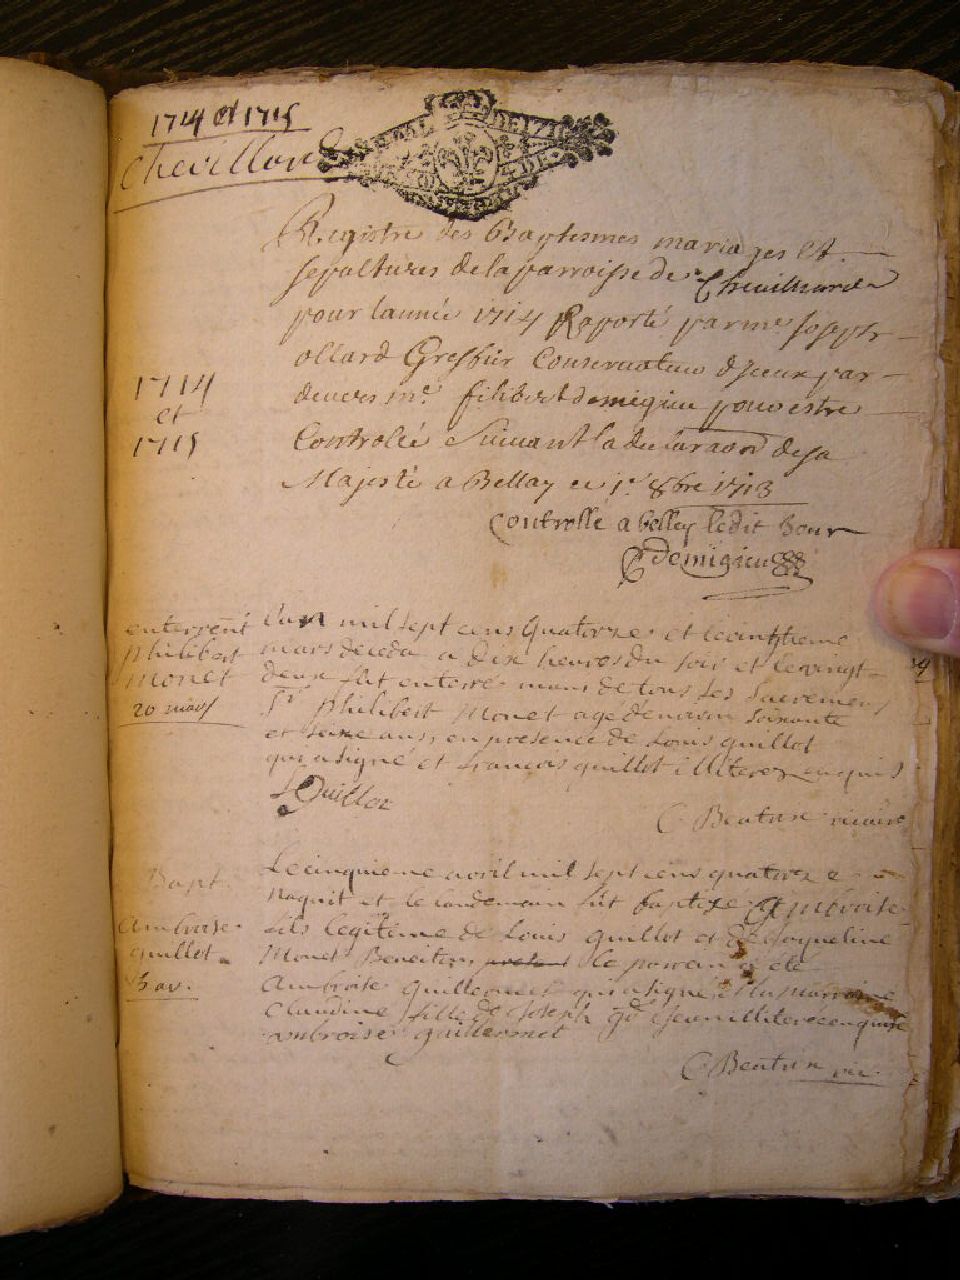 1714 et 1715
Chevillard
Registre des Baptesmes mariages et
sepultures de la parroisse de Chevillard
pour lannée 1714 Raporté par me Joseph
ollard Greffier Conservateur d'Iceux par
devers mr. filibert demigieu pour estre
1714
et
1715
Controllé Suivant la declaraon de sa
Majesté a Bellay ce 1r 8bre 1713
Controllé a belley ledit Jour
demigieu
enterremt
philibert
monet
20 mars
Lan mil sept cens quatorze et le vintieme
mars deceda a dix heures du soir et le vingt
deux fut enterré muni de tous ses sacremens
Sr philibert monet agé d'environ soixante
et seize ans, en presence de Louis guillot
qui a signé et francois guillot illiterez enquis
L Guillot
C Beatrix vicaire
Bapt
Ambroise
guillot
5 av.
Le cinquieme avril mil sept cens quatorze
naquit et le landemain fut baptizé Ambroise
fils legitime de Louis guillot et de Jacqueline
Monet le parrain a été
Ambroise guillermet qui a signé la marraine
Claudine fille de Joseph illiteré enquise
Ambroise guillermet
C Beatrix vic.